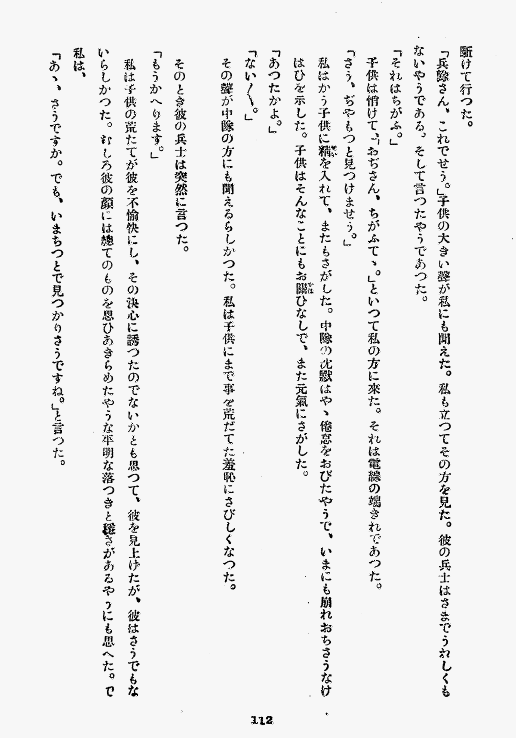 駈けて行つた。
「兵隊さん、これでせう。」子供の大きい聲が私にも聞えた。私も立つてその方を見た。彼の兵士はさまでうれしくも
ないやうである。そして言つたやうであつた。
「それはちがふ。」
子供は悄けて、「おぢさん、ちがふてゝ。」といつて私の方に來た。それは電線の端きれであつた。
「さう、ぢやもつと見つけませう。」
私はかう子供に精を入れて、またもさがした。中隊の沈默はやゝ倦怠をおびたやうで、いまにも崩れおちさうなけ
はひを示した。子供はそんなことにもお關ひなしで、また元氣にさがした。
「あつたかよ。」
「ない〳〵。」
その聲が中隊の方にも聞えるらしかつた。私は子供にまで事を荒だてた羞恥にさびしくなつた。
そのとき彼の兵士は突然に言つた。
「もうかへります。」
私は子供の荒たてが彼を不愉快にし、その決心に誘つたのでないかとも思つて、彼を見上げたが、彼はさうでもな
いらしかつた。むしろ彼の顏には總てのものを思ひあきらめたやうな平明な落つきと穩さがあるやうにも思へた。で
私は、
「あゝ、さうですか。でも、いまちつとで見つかりさうですね。」と言つた。
112